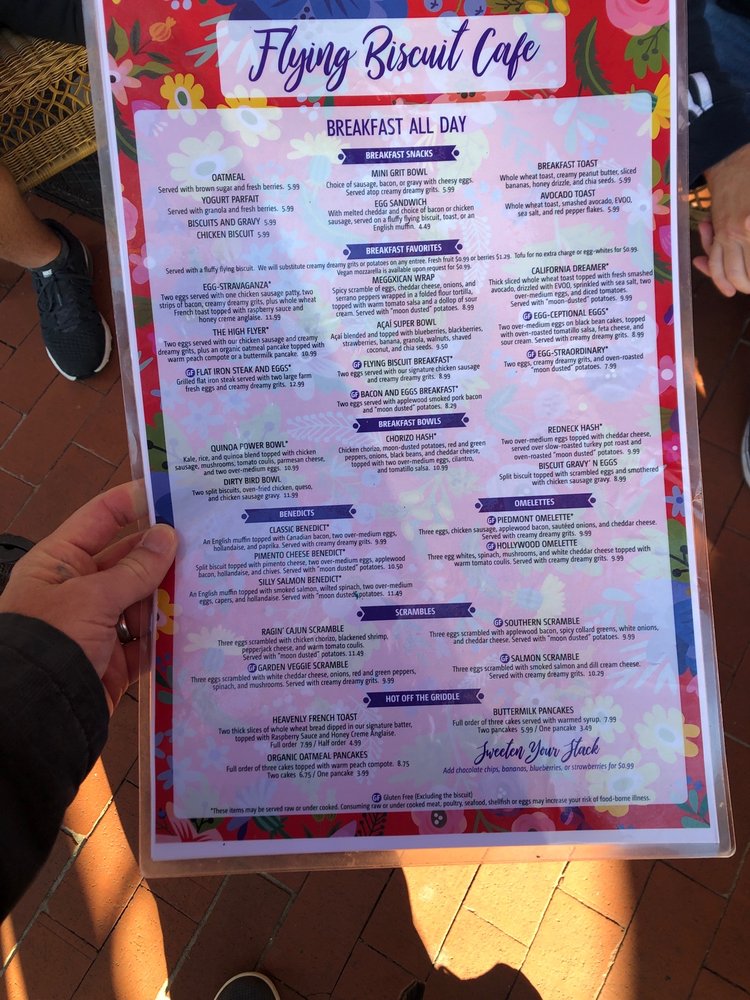 Flying Biscuit Cafe
BREAKFAST ALL DAY
BREAKFAST SNACKS
OATMEAL
Served with brown sugar and fresh berries. 5.99
YOGURT PARFAIT
Served with granola and fresh berries. 5.99
BISCUITS AND GRAVY 5.99
CHICKEN BISCUIT 5.99
MINI GRIT BOWL
Choice of sausage, bacon, or gravy with cheesy eggs.
Served atop creamy dreamy grits. 5.99
EGG SANDWICH
With melted cheddar and choice of bacon or chicken
sausage, served on a fluffy flying biscuit, toast, or an
English muffin. 4.49
BREAKFAST TOAST
Whole wheat toast, creamy peanut butter, sliced
bananas, honey drizzle, and chia seeds. 5.99
AVOCADO TOAST
Whole wheat toast, smashed avocado, EVOO,
sea salt, and red pepper flakes. 5.99
BREAKFAST FAVORITES
Served with a fluffy flying biscuit. We will substitute creamy dreamy grits or potatoes on any entree. Fresh fruit $0.99 or berries $1.29. Tofu for no extra charge or egg-whites for $0.99.
Vegan mozzarella is available upon request for $0.99.
EGG-STRAVAGANZA*
Two eggs served with one chicken sausage patty, two
strips of bacon, creamy dreamy grits, plus whole wheat
French toast topped with raspberry sauce and
honey creme anglaise. 11.99
THE HIGH FLYER*
Two eggs served with our chicken sausage and creamy
dreamy grits, plus an organic oatmeal pancake topped with
warm peach compote or a buttermilk pancake. 10.99
GF FLAT IRON STEAK AND EGGS*
Grilled flat iron steak served with two large farm
fresh eggs and creamy dreamy grits. 12.99
MEGGXICAN WRAP
Spicy scramble of eggs, cheddar cheese, onions, and
serrano peppers wrapped in a folded flour tortilla,
topped with warm tomato salsa and a dollop of sour
cream. Served with "moon-dusted" potatoes. 8.99
AÇAÍ SUPER BOWL
Açaí blended and topped with blueberries, blackberries,
strawberries, banana, granola, walnuts, shaved
coconut, and chia seeds. 9.50
GF FLYING BISCUIT BREAKFAST*
Two eggs served with our signature chicken sausage
and creamy dreamy grits. 8.99
GF BACON AND EGGS BREAKFAST*
Two eggs served with applewood smoked pork bacon
and "moon dusted" potatoes. 8.29
CALIFORNIA DREAMER*
Thick sliced whole wheat toast topped with fresh smashed
avocado, drizzled with EVOO, sprinkled with sea salt, two
over-medium eggs, and diced tomatoes.
Served with "moon-dusted" potatoes. 9.99
GF EGG-CEPTIONAL EGGS*
Two over-medium eggs on black bean cakes, topped
with oven-roasted tomatillo salsa, feta cheese, and
sour cream. Served with creamy dreamy grits. 8.99
GF EGG-STRAORDINARY*
Two eggs, creamy dreamy grits, and oven-roasted
"moon dusted" potatoes. 7.99
BREAKFAST BOWLS
QUINOA POWER BOWL*
Kale, rice, and quinoa blend topped with chicken
sausage, mushrooms, tomato coulis, parmesan cheese,
and two over-medium eggs. 10.99
DIRTY BIRD BOWL
Two split biscuits, oven-fried chicken, queso,
and chicken sausage gravy. 11.99
CHORIZO HASH*
Chicken chorizo, moon-dusted potatoes, red and green
peppers, onions, black beans, and cheddar cheese,
topped with two over-medium eggs, cilantro,
and tomatillo salsa. 10.99
REDNECK HASH*
Two over-medium eggs topped with cheddar cheese,
served over slow-roasted turkey pot roast and
oven-roasted "moon dusted" potatoes. 9.99
BISCUIT GRAVY' N EGGS
Split biscuit topped with scrambled eggs and smothered
with chicken sausage gravy. 8.99
BENEDICTS
CLASSIC BENEDICT*
An English muffin topped with Canadian bacon, two over-medium eggs,
hollandaise, and paprika. Served with creamy dreamy grits. 9.99
PIMENTO CHEESE BENEDICT*
Split biscuit topped with pimento cheese, two over-medium eggs, applewood
bacon, hollandaise, and chives. Served with "moon dusted" potatoes. 10.50
SILLY SALMON BENEDICT*
An English muffin topped with smoked salmon, wilted spinach, two over-medium
eggs, capers, and hollandaise. Served with "moon dusted" potatoes. 11.49
OMELETTES
GF PIEDMONT OMELETTE*
Three eggs, chicken sausage, applewood bacon, sautéed onions, and cheddar cheese.
Served with creamy dreamy grits. 9.99
GF HOLLYWOOD OMELETTE
Three egg whites, spinach, mushrooms, and white cheddar cheese topped with
warm tomato coulis. Served with creamy dreamy grits. 9.99
SCRAMBLES
RAGIN' CAJUN SCRAMBLE
Three eggs scrambled with chicken chorizo, blackened shrimp,
pepperjack cheese, and warm tomato coulis.
Served with "moon dusted" potatoes. 11.49
GF GARDEN VEGGIE SCRAMBLE
Three eggs scrambled with white cheddar cheese, onions, red and green peppers,
spinach, and mushrooms. Served with creamy dreamy grits. 9.99
GF SOUTHERN SCRAMBLE
Three eggs scrambled with applewood bacon, spicy collard greens, white onions,
and cheddar cheese. Served with "moon dusted" potatoes. 9.99
GF SALMON SCRAMBLE
Three eggs scrambled with smoked salmon and dill cream cheese.
Served with creamy dreamy grits. 10.29
HOT OFF THE GRIDDLE
HEAVENLY FRENCH TOAST
Two thick slices of whole wheat bread dipped in our signature batter,
topped with Raspberry Sauce and Honey Creme Anglaise.
Full order 7.99 / Half order 4.99
ORGANIC OATMEAL PANCAKES
Full order of three cakes topped with warm peach compote. 8.75
Two cakes 6.75 / One pancake 3.99
BUTTERMILK PANCAKES
Full order of three cakes served with warmed syrup. 7.99
Two pancakes 5.99 / One pancake 3.49
Sweeten Your Stack
Add chocolate chips, bananas, blueberries, or strawberries for $0.99
GF Gluten Free (Excluding the biscuit)
*These items may be served raw or under cooked. Consuming raw or under cooked meat, poultry, seafood, shellfish or eggs may increase your risk of food-borne illness.